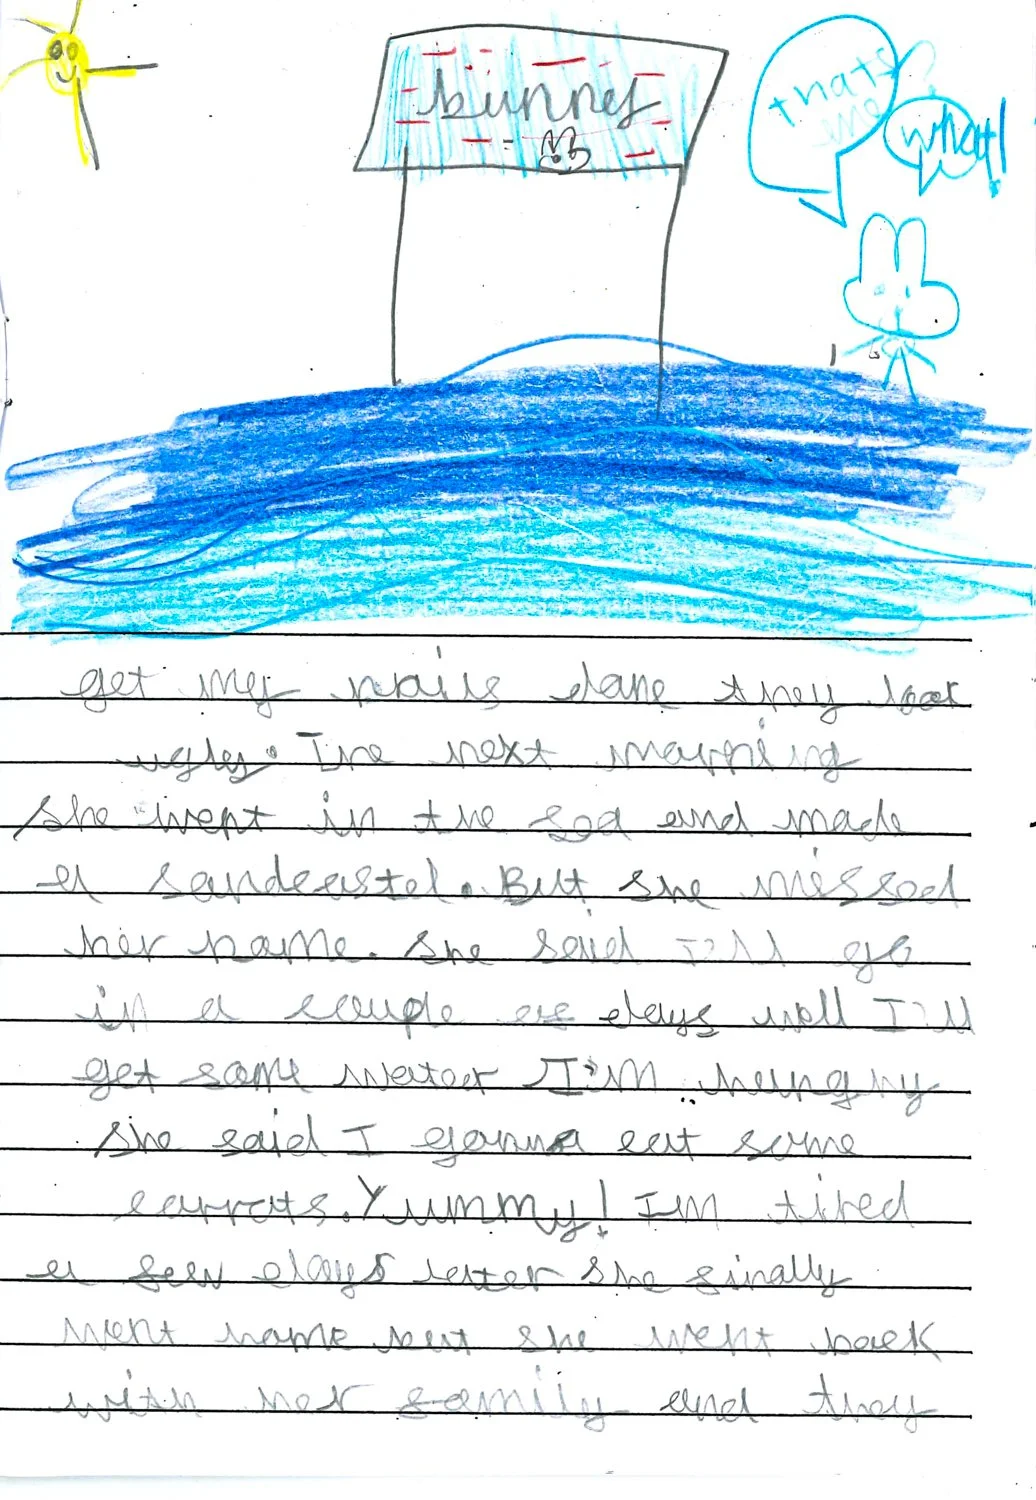 bunny
thats
me
what!
get my nails done they look
ugly. The next morning
she went in the sea and made
a sandcastel. But she missed
her home. She said I'll go
in a couple of days well I'll
get some water I'm hungry
She said I gonna eat some
carrots. Yummy! I'm tired
a few days later she finally
went home but she went back
with her family and they